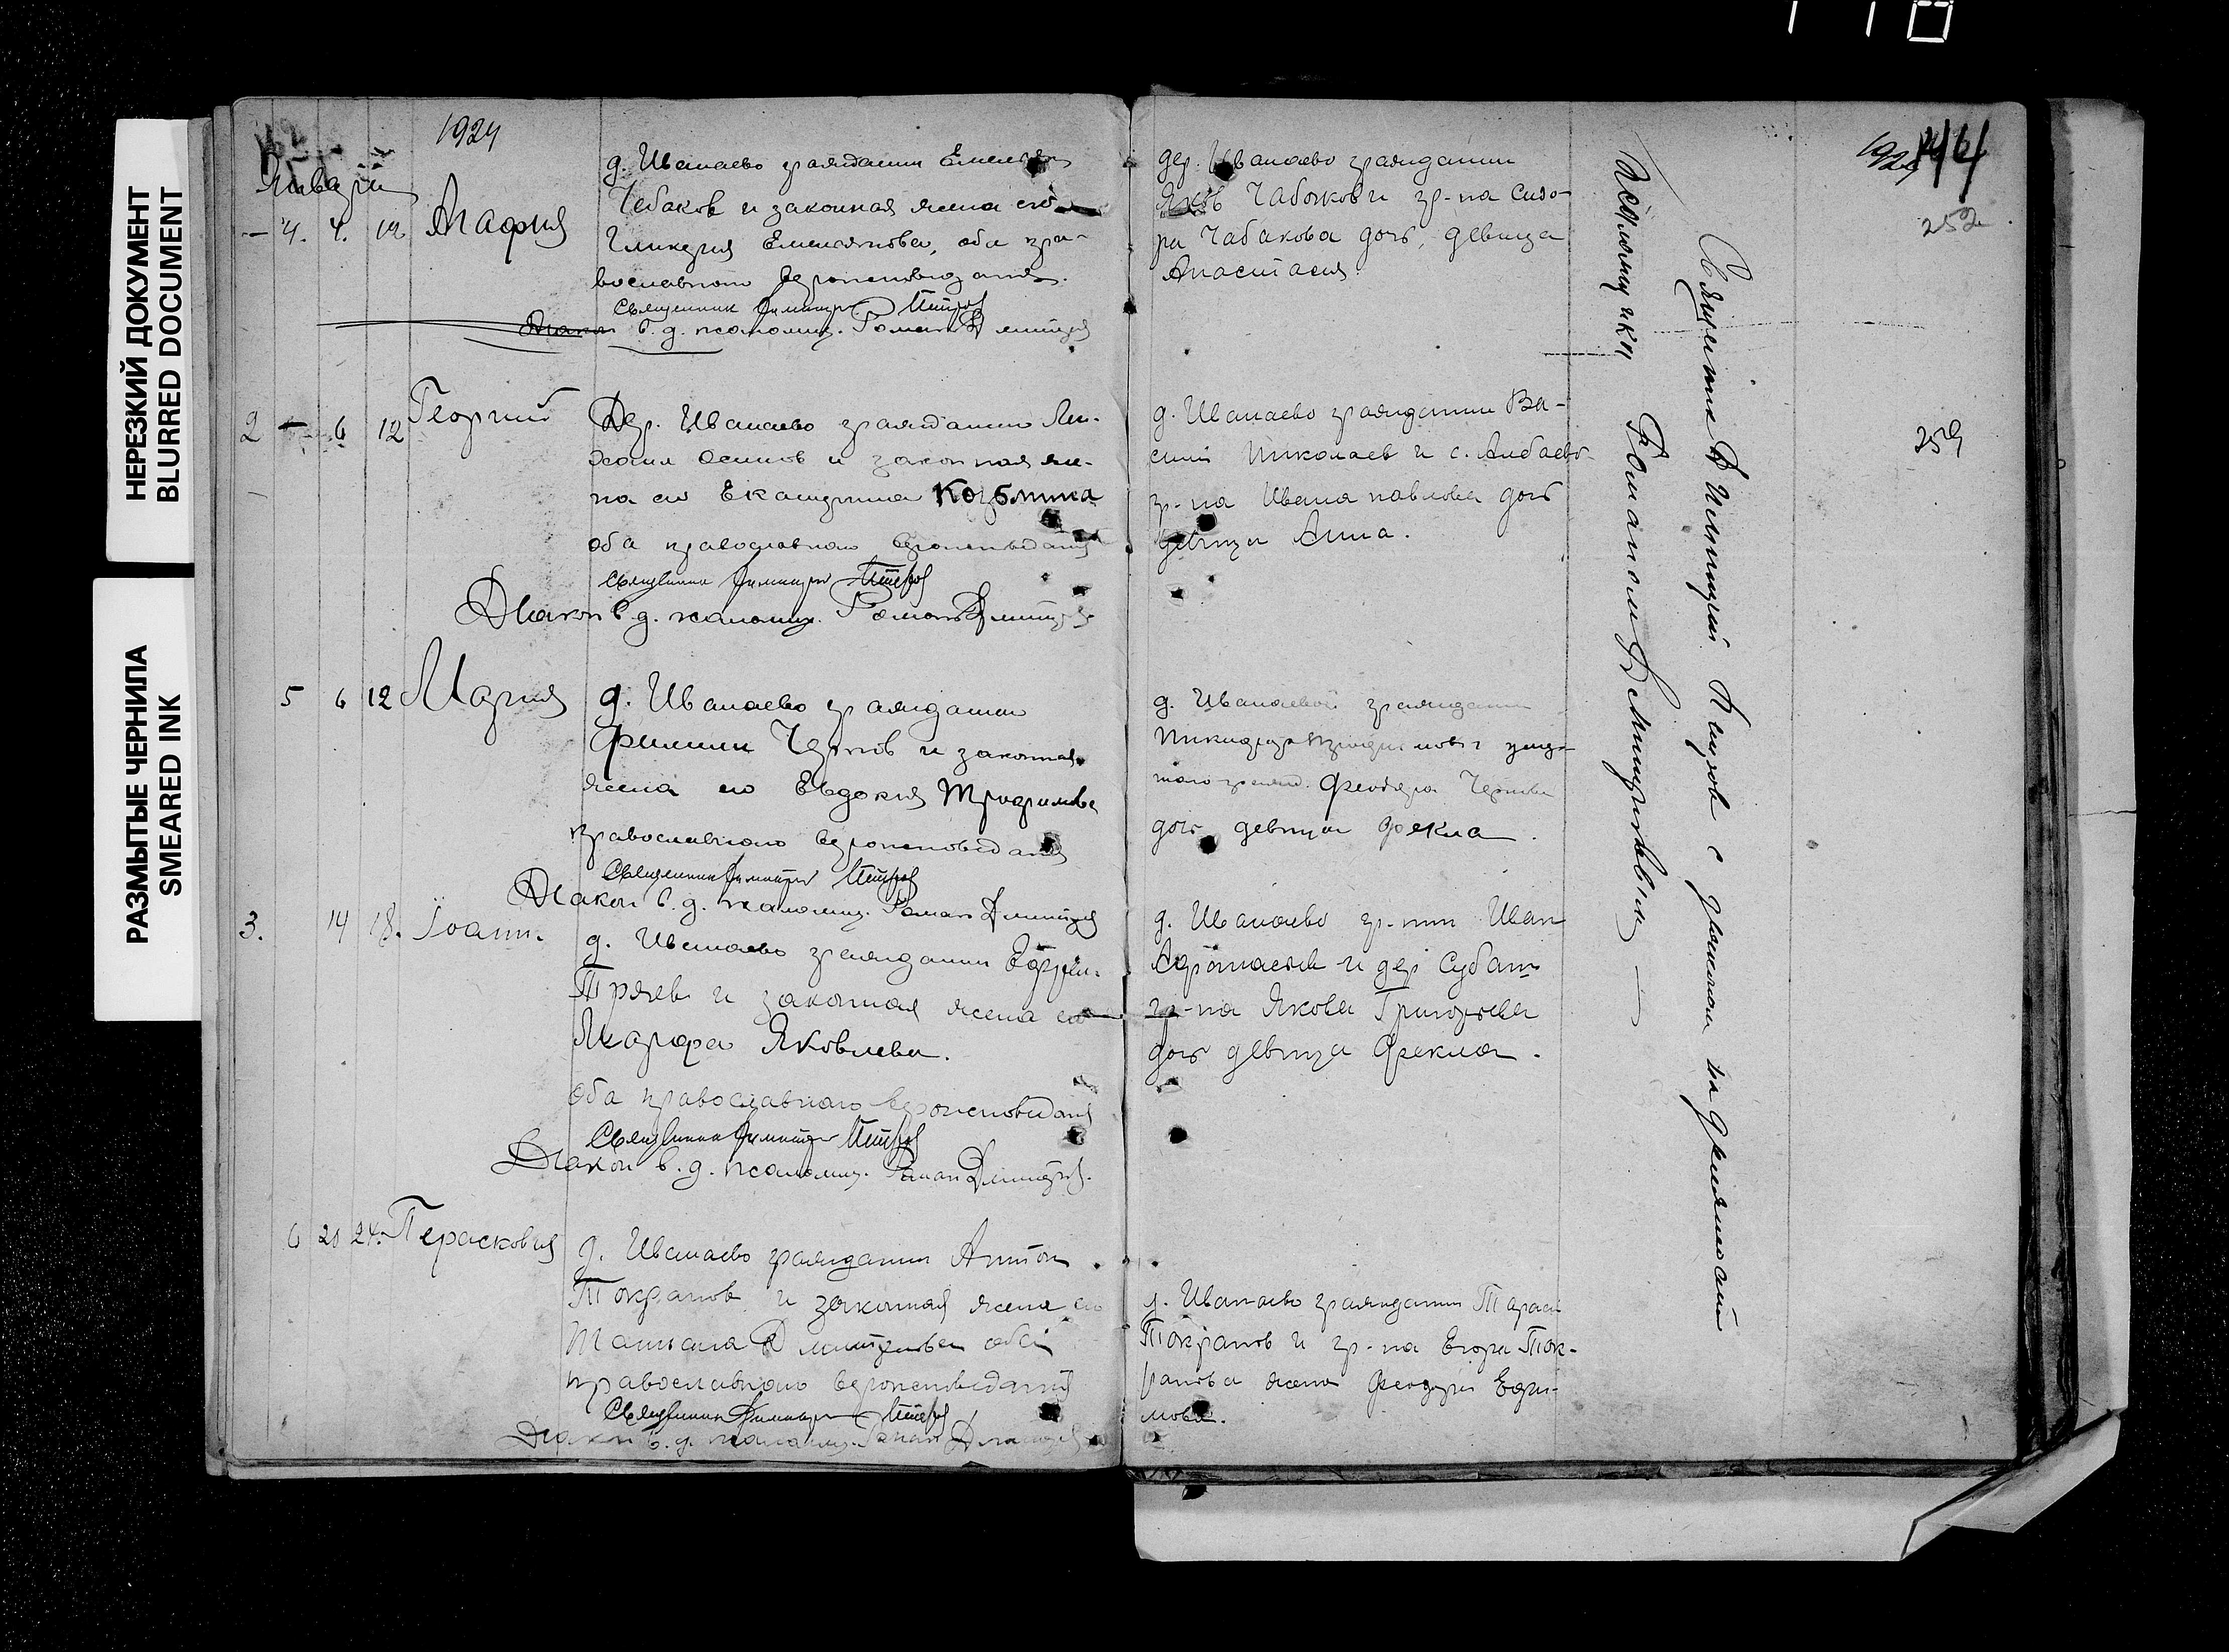 НЕРЕЗКИЙ ДОКУМЕНТ
BLURRED DOCUMENT
РАЗМЫТЫЕ ЧЕРНИЛА
SMEARED INK
1924
Январь
4. 4. 12 Агафия
д. Иванаево гражданин Емельян
Чебаков и законная жена его
Гликерия Емельянова, оба пра-
вославного вероисповедания.
Священник Димитрий Петров
Диакон в. д. псаломщ. Роман Дмитриев
2 - 6 12 Георгий
Дер. Иванаево гражданин Ми-
хаил Осипов и законная же-
на его Екатерина Козьмина
оба православного вероисповедания
Священник Димитрий Петров
Диакон в. д. псаломщ. Роман Дмитриев
5 6 12 Мария
д. Иванаево гражданин
Филипп Чернов и законная
жена его Евдокия Трофимова
православного вероисповедания
Священник Димитрий Петров
Диакон в. д. псаломщ. Роман Дмитриев
3. 14 18. Iоанн.
д. Иванаево гражданин Ефрем
Тряев и законная жена его
Марфа Яковлева.
оба православного вероисповедания
Священник Димитрий Петров
Диакон в. д. псаломщ. Роман Дмитриев.
6 20 24. Перасковия
д. Иванаево гражданин Антон
Токранов и законная жена его
Татиана Дмитриева оба
православного вероисповедания
Священник Димитрий Петров
Диакон в. д. псаломщ. Роман Дмитриев
дер. Иванаево гражданин
Яков Чабаков и гр-на Сидо-
ра Чабакова дочь, девица
Анастасия.
д. Иванаево гражданин Ва-
силий Николаев и с. Албаево
гр-на Ивана Павлова дочь
девица Анна.
д. Иванаево гражданин
Никифор
гражд. Феодора Чернова
дочь девица Фекла.
д. Иванаево гр-нин Иван
Афанасьев и дер Субаш
гр-на Якова Григорьева
дочь девица Фекла.
д. Иванаево гражданин Тарас
Токранов и гр-на Егора Ток-
ранова жена Феодора Ефи-
мова.
Священник Димитрий Петров с
Романом Дмитриевым
252
259